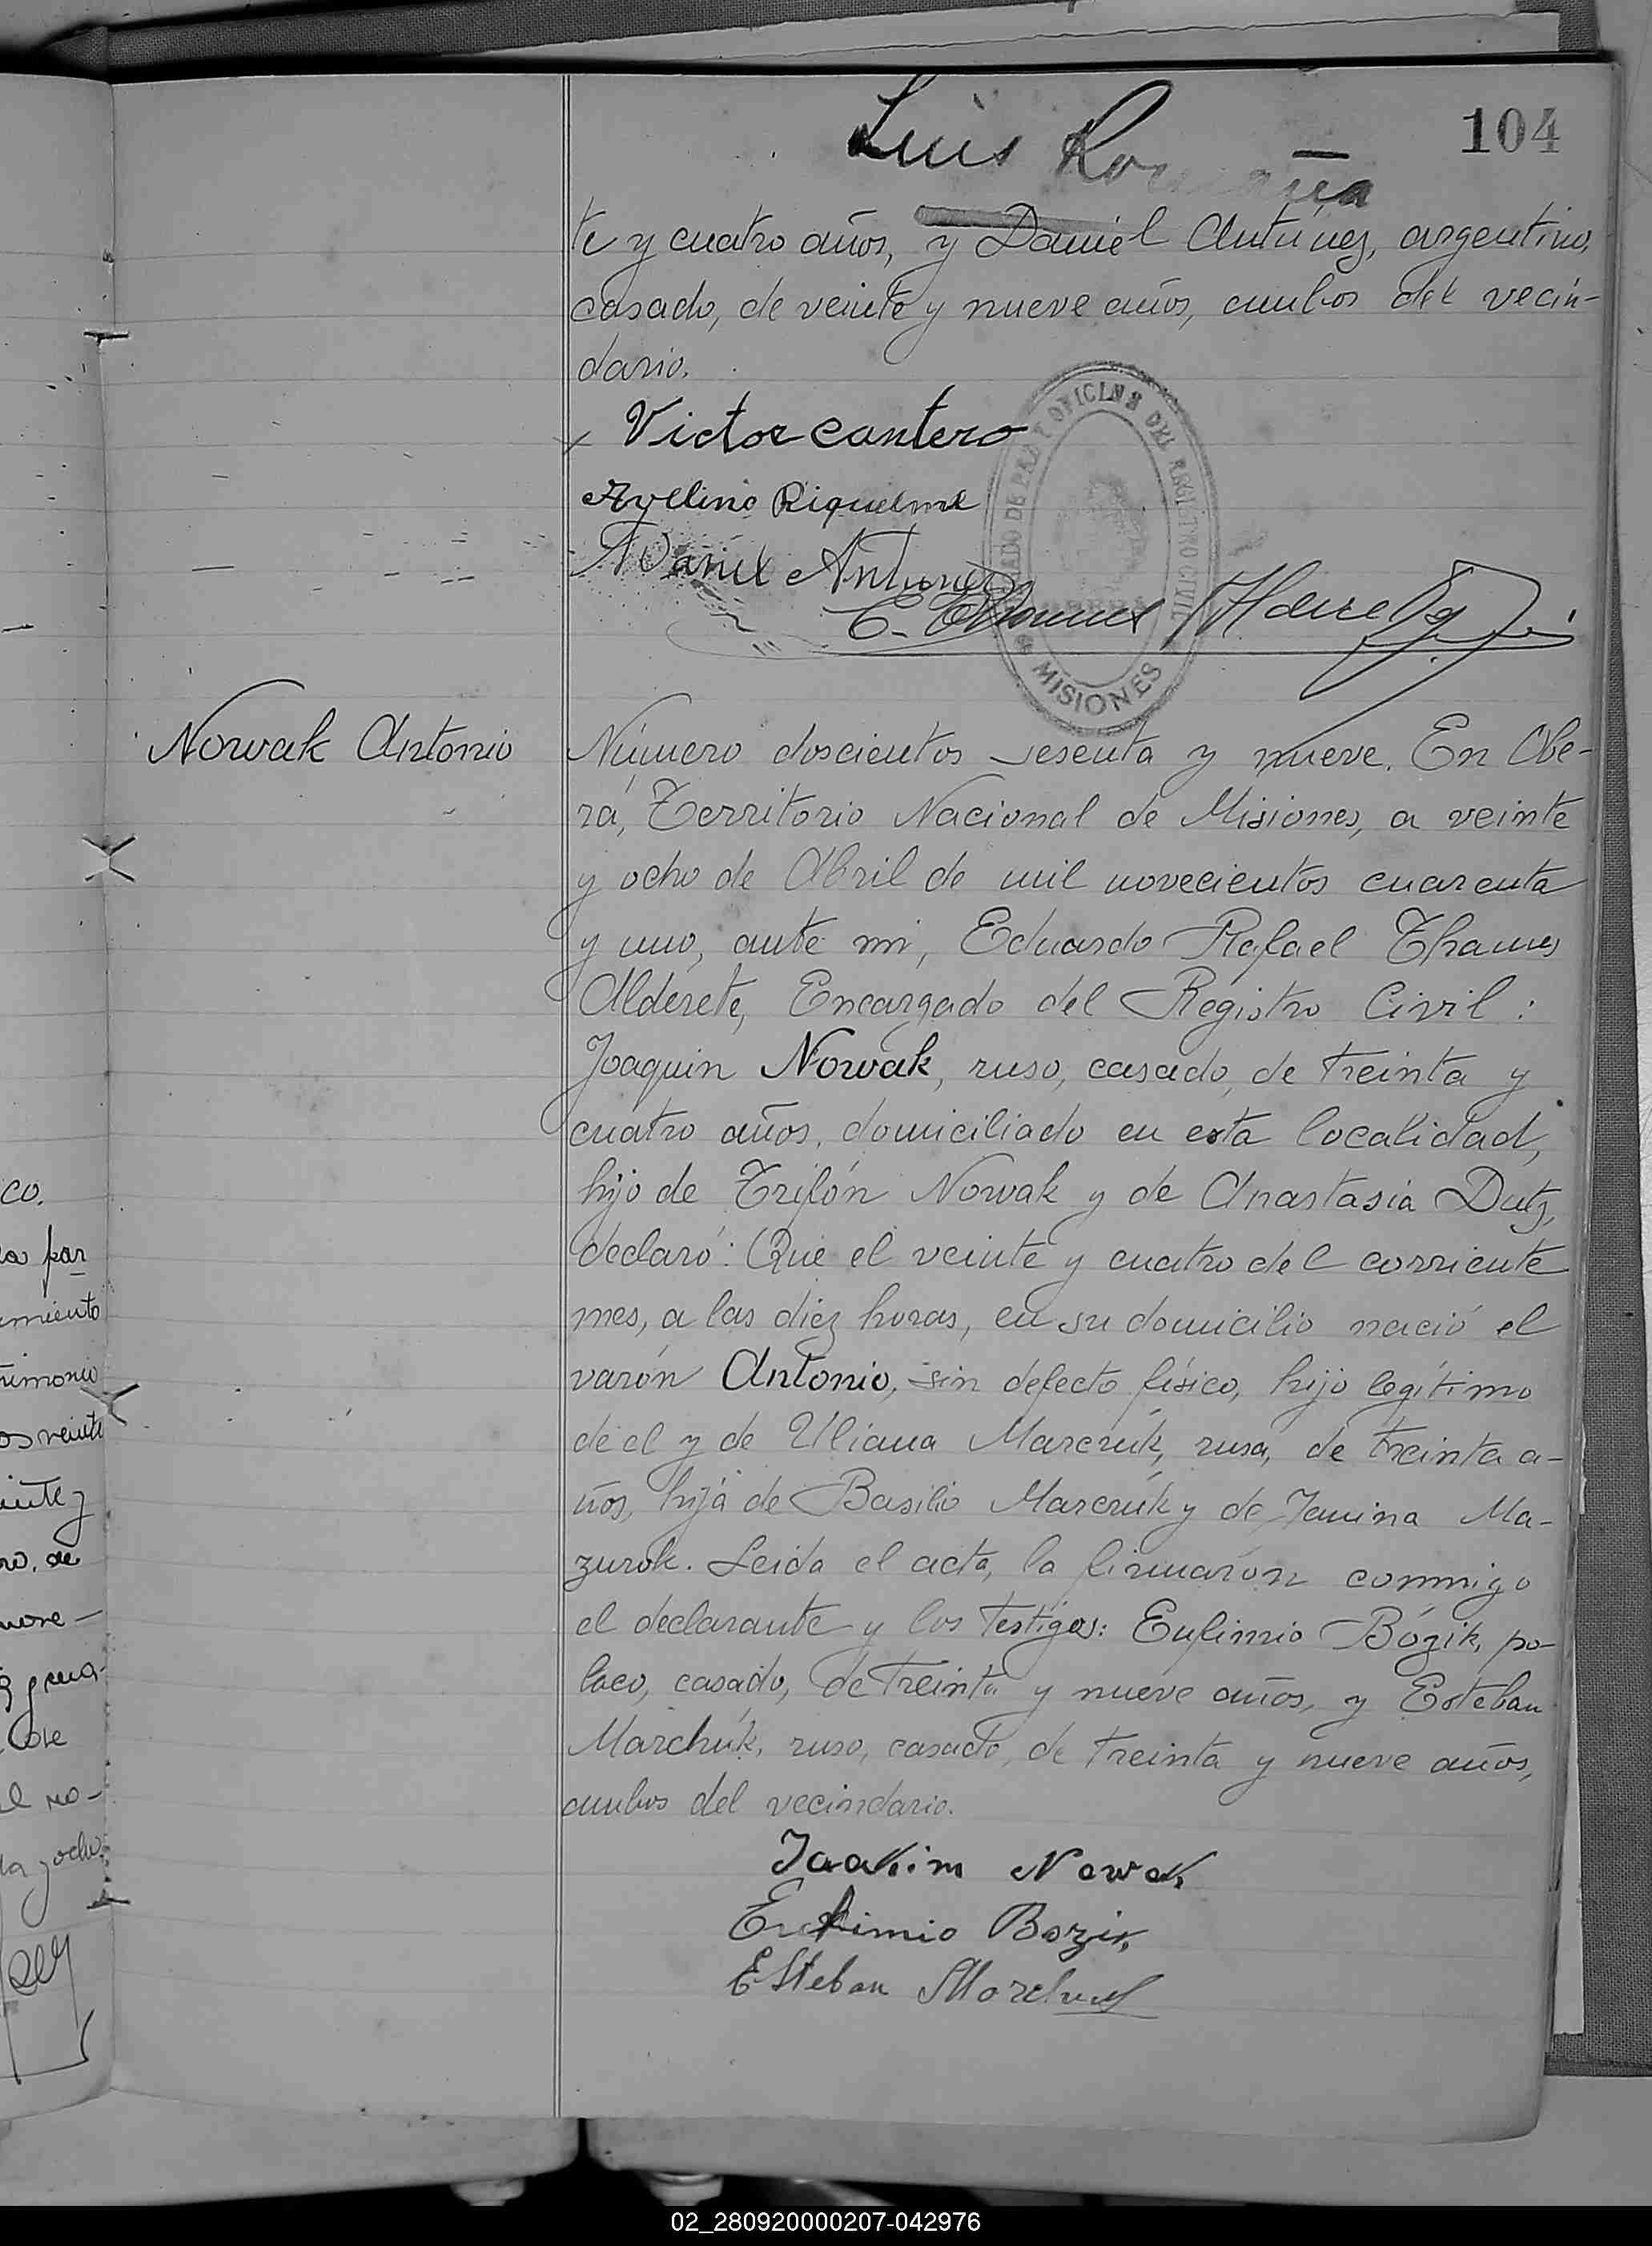 104
Luis
te y cuatro años, y Daniel Antúnez, argentino,
casado, de veinte y nueve años, ambos del vecin-
dario.
Victor Cantero
Avelino Riquelme
Daniel Antunez
JUZGADO DE PAZ Y OFICINA DEL REGISTRO CIVIL
MISIONES
Nowak Antonio
Número doscientos sesenta y nueve. En Obe-
rá, Territorio Nacional de Misiones, a veinte
y ocho de Abril de mil novecientos cuarenta
y uno, ante mi, Eduardo Rafael Thames
Alderete, Encargado del Registro Civil:
Joaquin Nowak, ruso, casado, de treinta y
cuatro años, domiciliado en esta localidad,
hijo de Trifón Nowak y de Anastasia Dutz,
declaró: Que el veinte y cuatro del corriente
mes, a las diez horas, en su domicilio nació el
varón Antonio, sin defecto físico, hijo legítimo
de el y de Uliana Marczúk, rusa, de treinta a-
ños, hija de Basilio Marczúk y de Janina Ma-
zurok. Leida el acta, la firmaron conmigo
el declarante y los testigos: Eufimio Bózik, po-
laco, casado, de treinta y nueve años, y Esteban
Marchúk, ruso, casado, de treinta y nueve años,
ambos del vecindario.
Joakim Nowak
Eufimio Bozik
Esteban Marchuk
co.
la par
miento
trimonio
os veinte
einte y
ro, de
nove-
de
el no-
ta y ocho
02_280920000207-042976